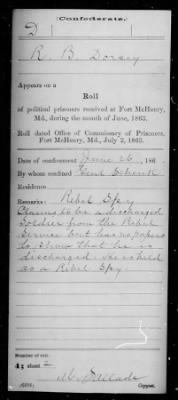 Confederate.
D
R. B. Dorsey
Appears on a
Roll
of political prisoners received at Fort McHenry,
Md., during the month of June, 1863.
Roll dated Office of Commissary of Prisoners,
Fort McHenry, Md., July 2, 1863.
Date of confinement June 26, 186
By whom confined Genl Schenck
Residence
Remarks: Rebel Spy
Claims to be a discharged
soldier from the Rebel
Service but has no papers
to show that he is
discharged. He is held
as a Rebel Spy.
Number of roll:
4; sheet
Copyist.